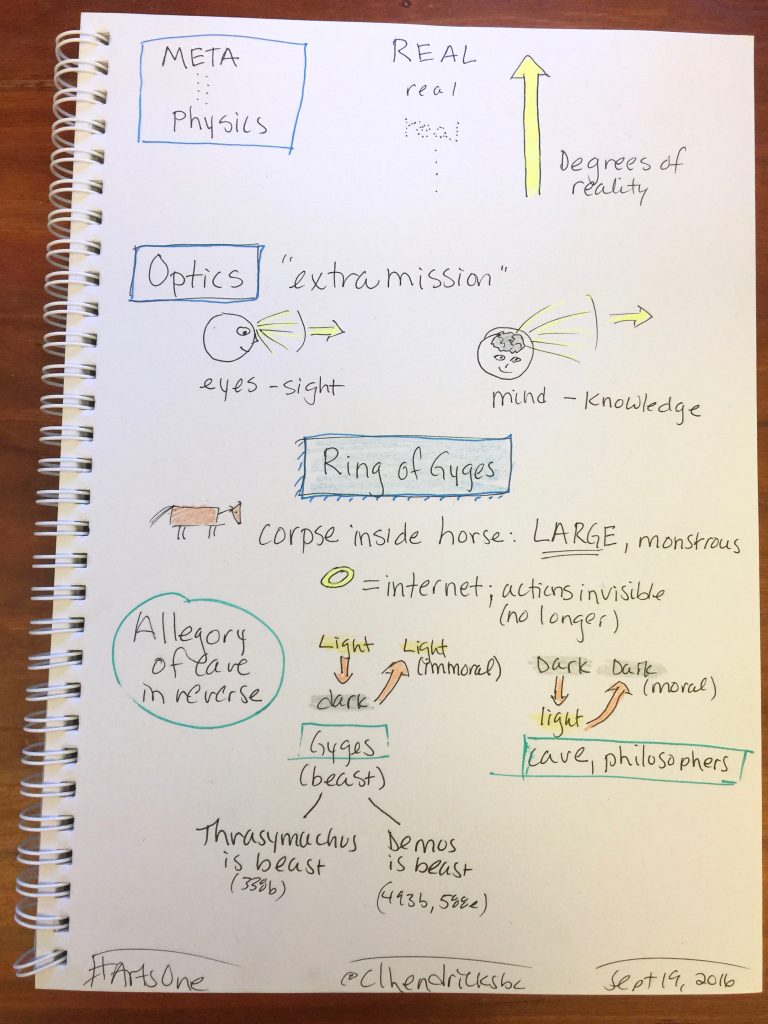 META
physics
REAL
real
real
Degrees of
reality
Optics "extramission"
eyes - sight
mind - knowledge
Ring of Gyges
corpse inside horse: LARGE, monstrous
= internet; actions invisible
(no longer)
Allegory
of cave
in reverse
Light Light
(immoral)
dark
Gyges
(beast)
Dark Dark
(moral)
light
cave, philosophers
Thrasymachus
is beast
(338b)
Demos
is beast
(493b, 588e)
#ArtsOne @clhendricksbc Sept 19, 2016